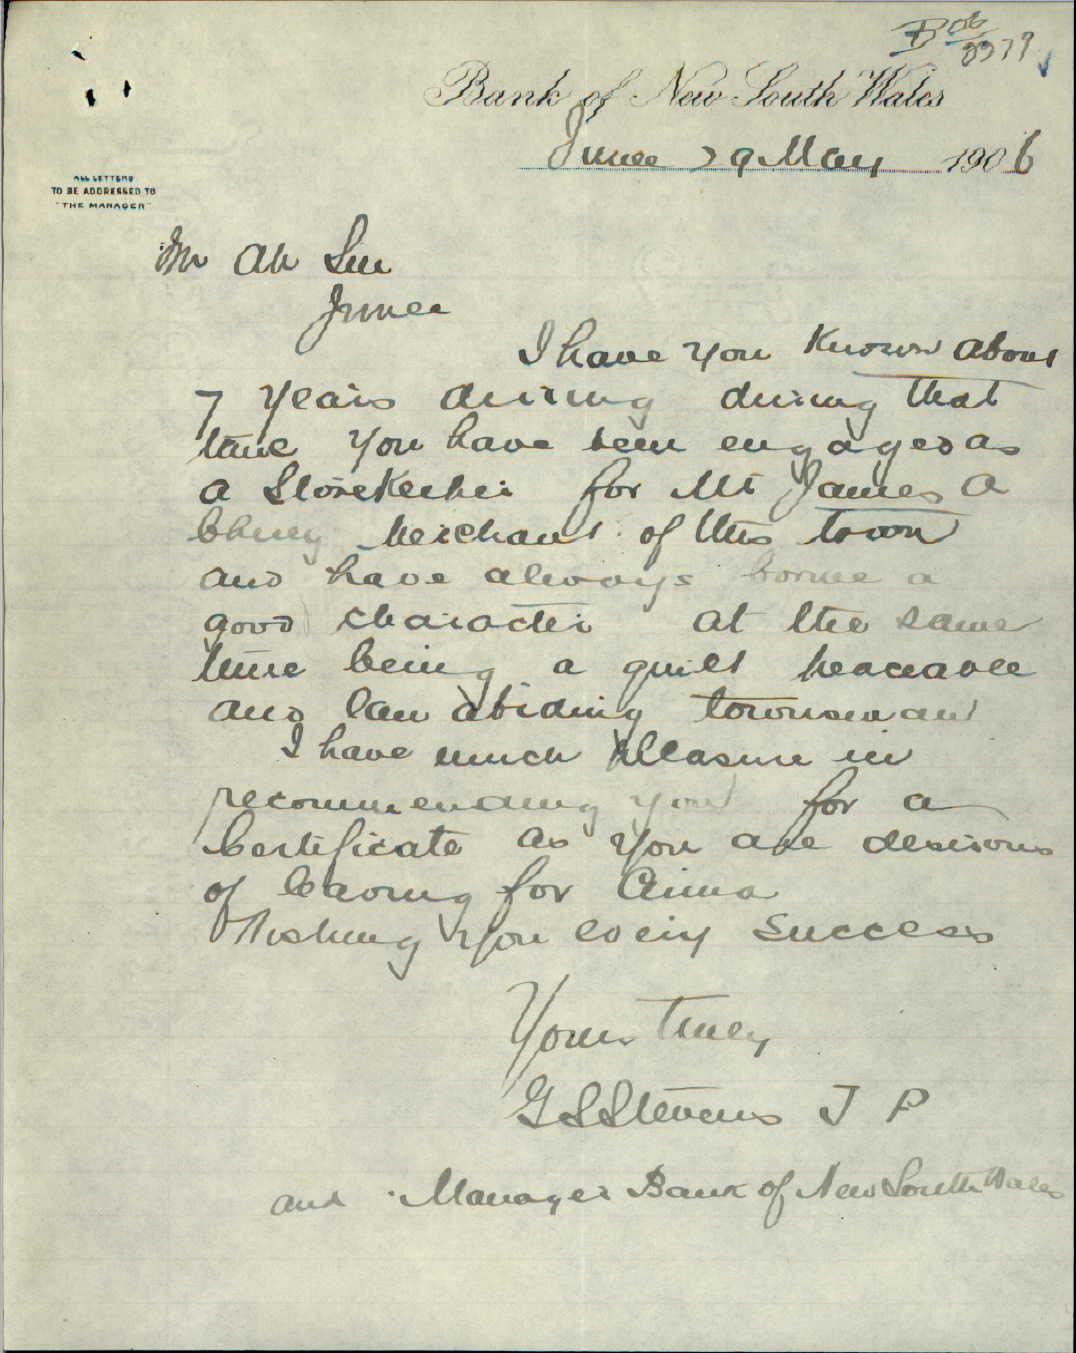 B 06/3379
Bank of New South Wales
Junee 29 May 1906
ALL LETTERS
TO BE ADDRESSED TO
"THE MANAGER"
Mr Ah Sue
Junee
I have you known about
7 years during during that
time you have been engaged as
a Storekeeper for Mr James A
merchant of this town
and have always borne a
good character at the same
time being a quiet peaceable
and law abiding townsman
I have much pleasure in
recommending you for a
Certificate as you are desirous
of leaving for China
Wishing you every success
Yours truly
G S Stevens J P
and Manager Bank of New South Wales